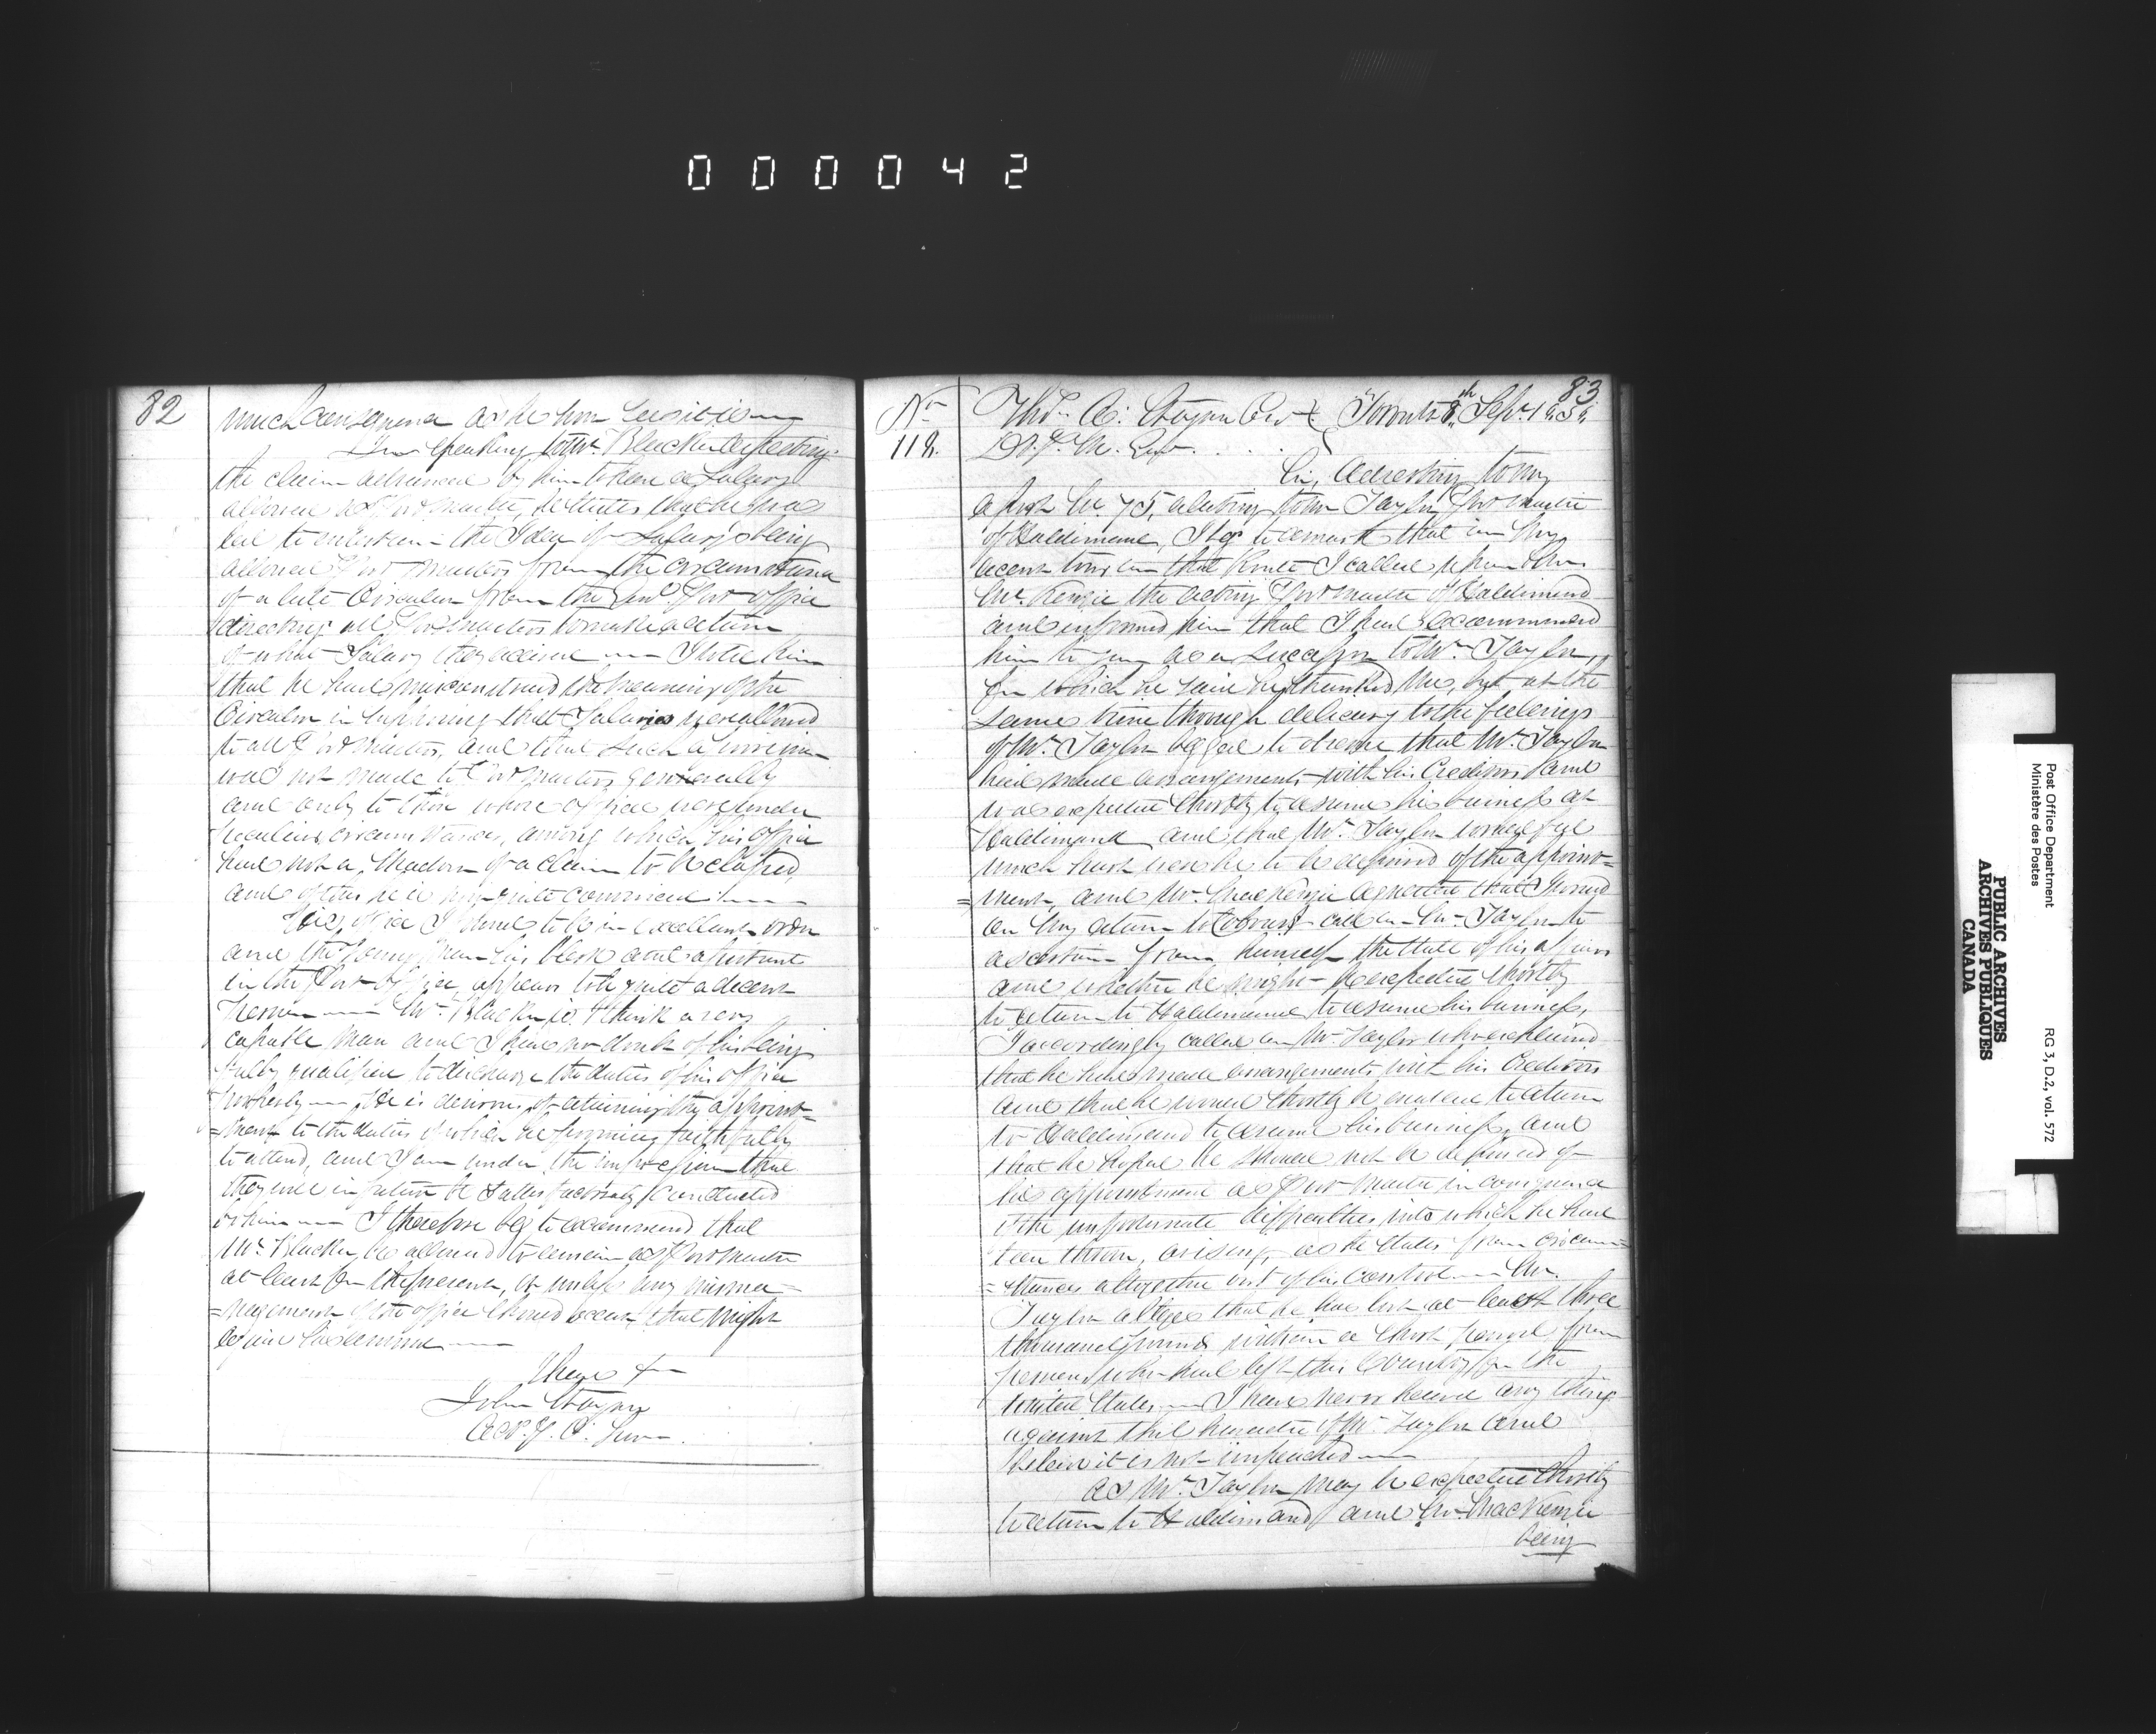 000042
82
much consequence as he now
In speaking to Mr. Blacker respecting
the claim advanced by him to have a Salary
allowed as Post Master, he states that he was
led to entertain the Idea of Salary's being
allowed Post Masters from the circumstance
of a late Circular from the Genl. Post Office
directing all Post Masters to make a return
of what Salary they received — I told him
that he had misconstrued the meaning of the
Circular in supposing that Salaries were allowed
to all Post Masters, and that such a provision
was not made to Post Masters generally
and only to those whose offices were under
peculiar circumstances, among which his office
had not a shadow of a claim to be classed,
and of this he is now quite convinced —
His office I found to be in excellent order
and the young man his Clerk and assistant
in the Post Office, appears to be quite a decent
person — Mr. Blacker is I think a very
capable man and I have no doubt of his being
fully qualified to discharge the duties of his office
properly — He is desirous of retaining the appoint=
=ment to the duties of which he promises faithfully
to attend, and I am under the impression that
they will in future be satisfactorily conducted
by him — I therefore beg to recommend that
Mr. Blacker be allowed to remain as Post Master
at least for the present, or unless any misma=
=nagement of the office should occur, that might
require his removal —
I have &c
John Stayner
P. O. Surv.
83
No
118.
Thos. A: Stayner Esqr
D. P. M. Genl. . . . .
Toronto 8th Sepr. 1838.
Sir, Adverting to my
report No. 75, relating to Mr Taylor, Post Master
of Haldimand, I beg to remark that in my
recent tour on that Route I called upon John
McKenzie the acting Post Master of Haldimand
and informed him that I had recommended
him to you as a Successor to Mr. Taylor,
for which he said he thanked me, but at the
same time through delicacy to the feelings
of Mr. Taylor begged to observe that Mr. Taylor
had made arrangements with his Creditors and
was expected shortly to resume his business at
Haldimand and that Mr. Taylor would feel
much hurt were he to be deprived of the appoint=
=ment, and Mr. MacKenzie requested that I would
on my return to Cobourg call on Mr. Taylor to
ascertain from himself the state of his affairs
and whether he might be expected shortly
to return to Haldimand to resume his business,
I accordingly called on Mr. Taylor who explained
that he had made arrangements with his Creditors
and that he would shortly be enabled to return
to Haldimand to resume his business, and
that he hoped he should not be deprived of
his appointment as Post Master in consequence
of the unfortunate difficulties into which he had
been thrown, arising, as he states from circum=
=stances altogether out of his control — Mr.
Taylor alleges that he has lost at least three
thousand pounds within a short period from
persons who had left this Country for the
United States — I have never heard any thing
against the character of Mr. Taylor and
believe it is not impeached —
As Mr. Taylor may be expected shortly
to return to Haldimand and Mr. MacKenzie
being
PUBLIC ARCHIVES
ARCHIVES PUBLIQUES
CANADA
Post Office Department
Ministère des Postes
RG 3, D.2, vol. 572